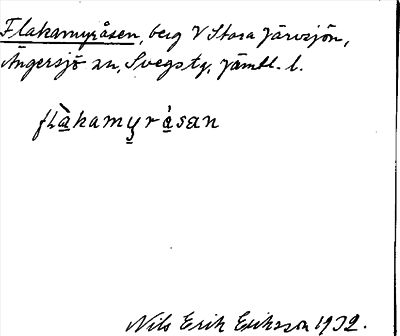 Flakamyråsen, berg V Stora Järvsjön,
Ängersjö sn, Svegs tg, Jämtl. l.
flàkamyråsan
Nils Erik Eriksson 1932.